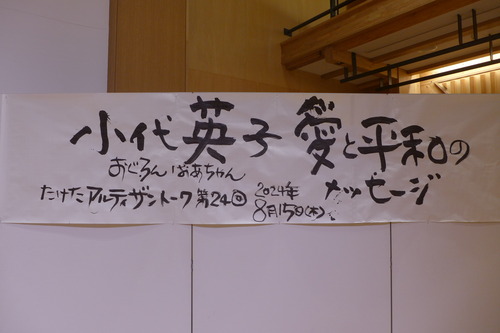 小代英子 愛と平和の
おぐろん ばあちゃん メッセージ
たけた アルティザントーク 第24回 2024年 8月15日(木)